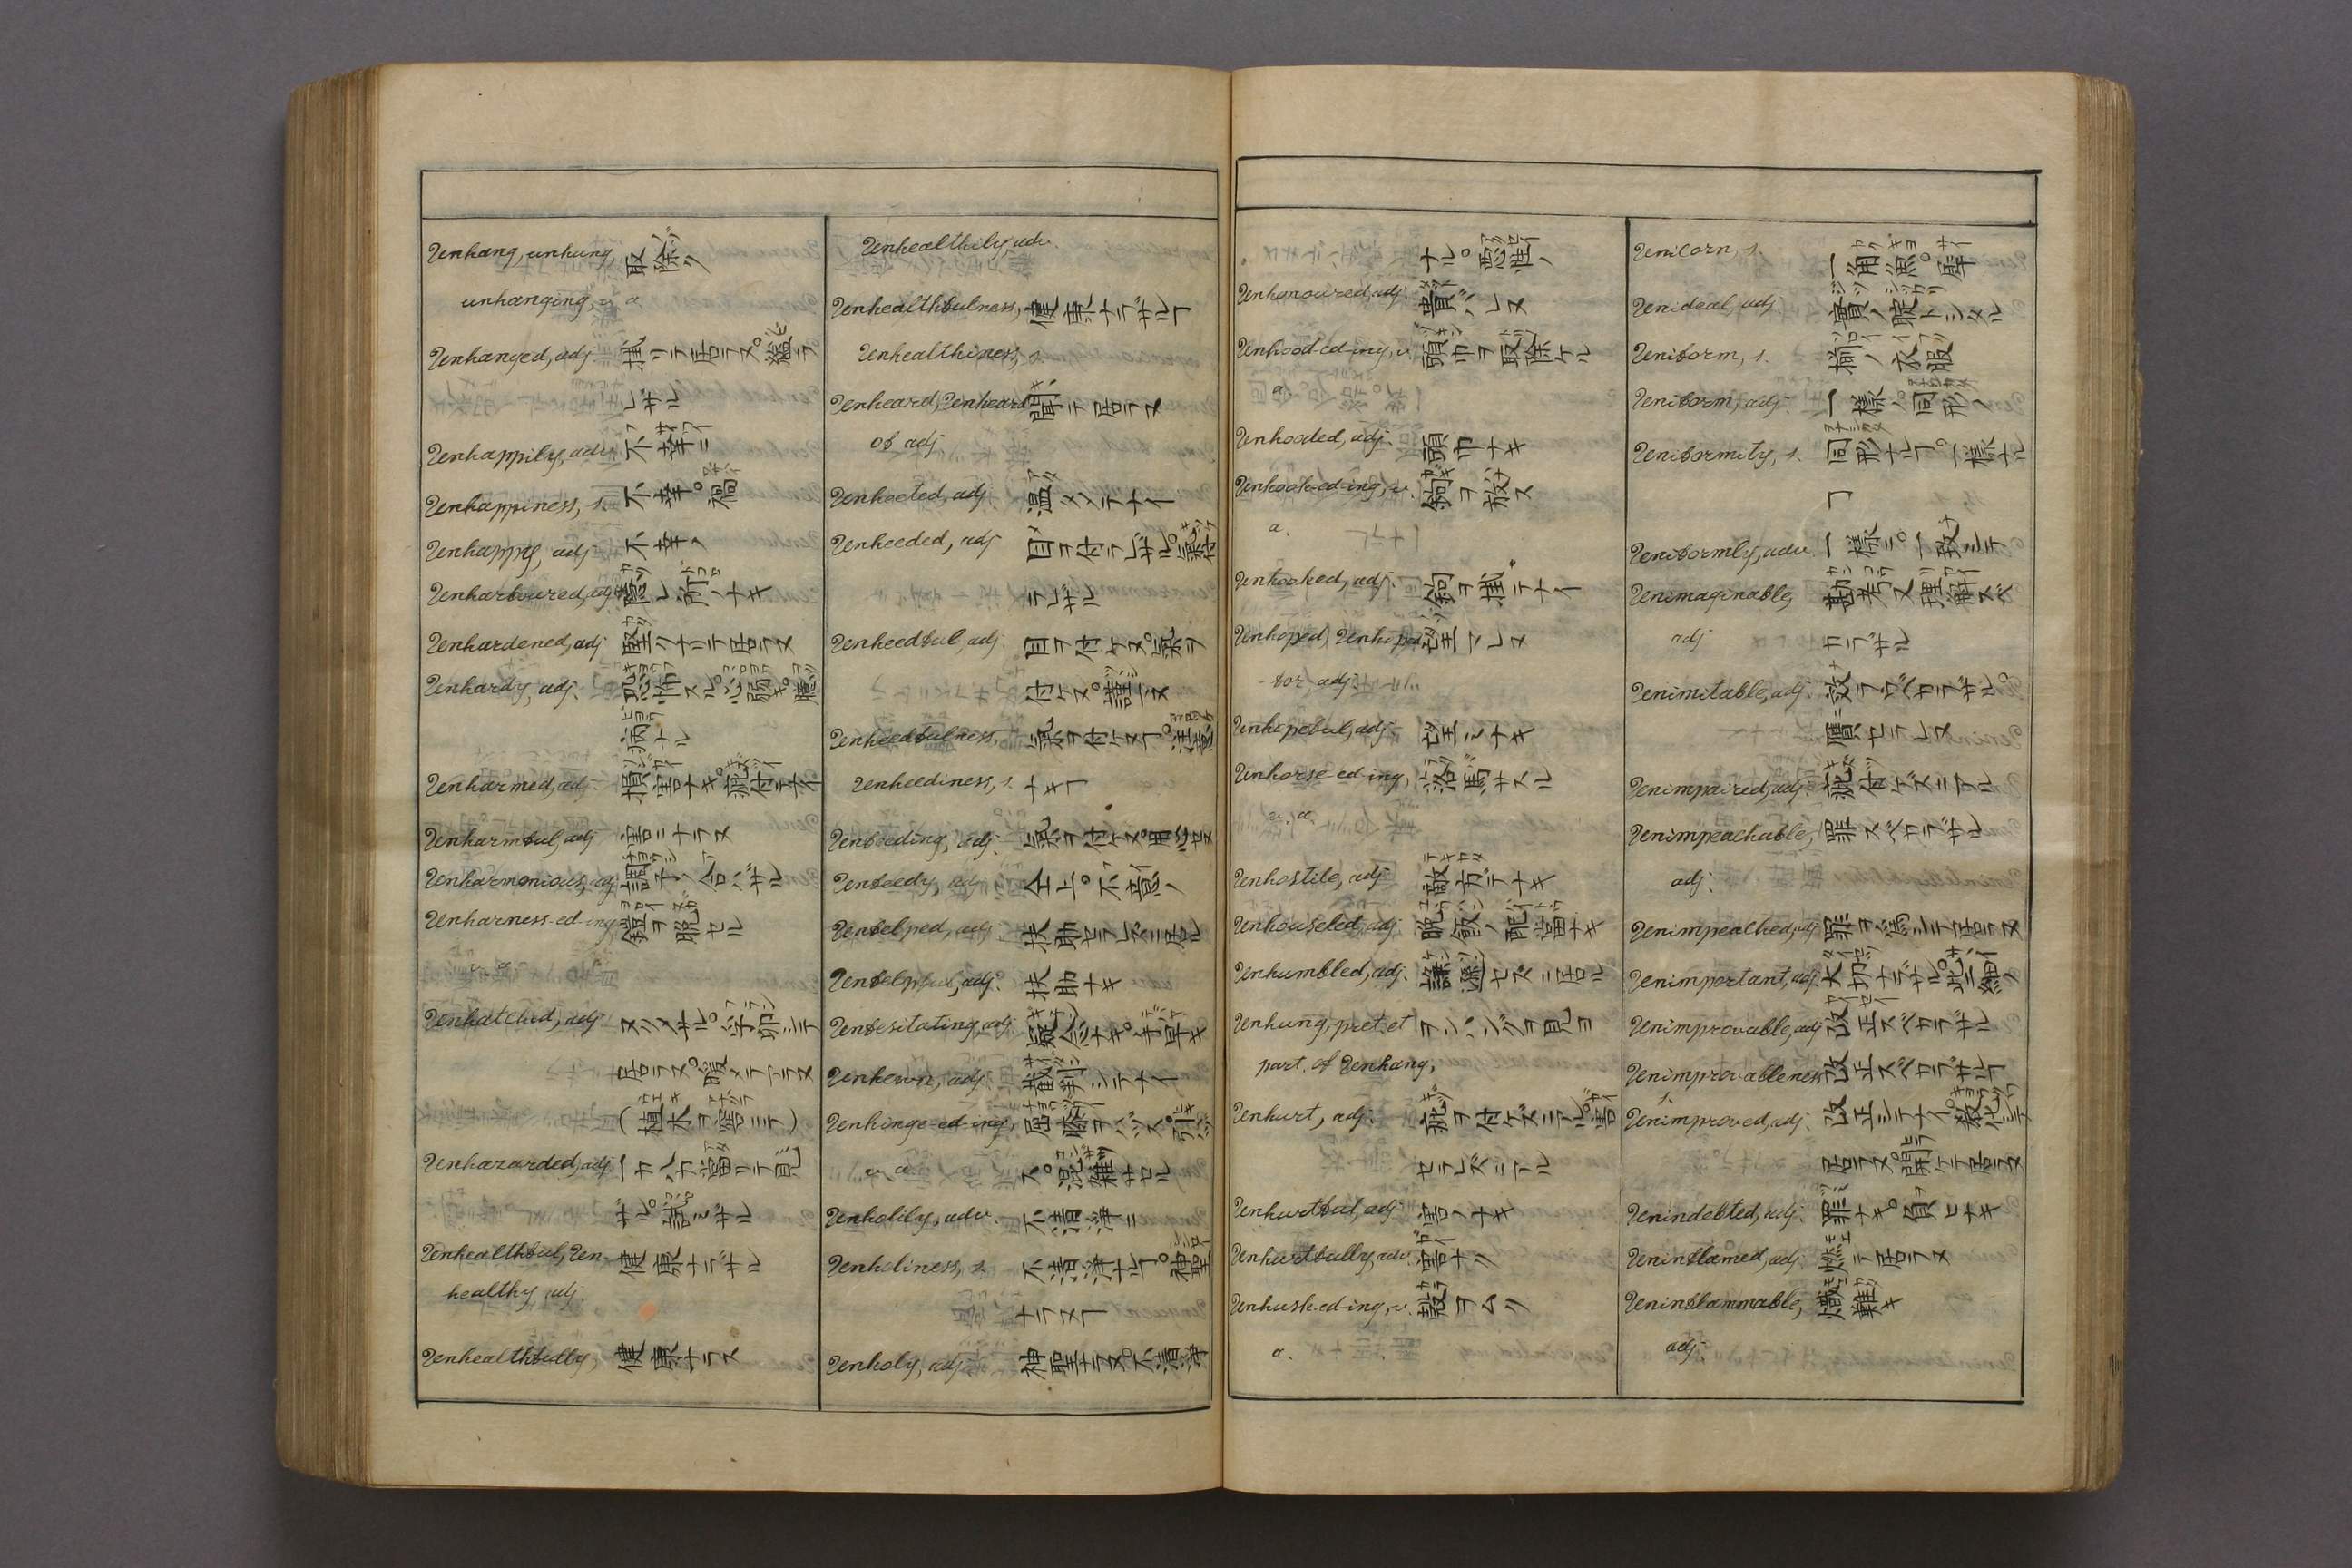 Unhang, unhung, 取除ク
unhanging, v. a
Unhanged, adj. 掛リテ居ラヌ。縊ラ
レザル
Unhappily, adv. 不幸ニ
Unhappiness, s. 不幸。禍
Unhappy, adj 不幸ノ
Unharboured, adj 隠レ所ノナキ
Unhardened, adj 堅クナリテ居ラヌ
Unhardy, adj. 恐怖スル。心弱キ。臆
病ナル
Unharmed, adj. 損害ナキ。疵付テナイ
Unharmful, adj 害ニナラヌ
Unharmonious, adj 調子ノ合ハザル
Unharness-ed-ing, 鎧ヲ脱セル
v. a
Unhatched, adj ヌクメザル。孚卵シテ
居ラヌ。
Unhazarded, adj 一カハカ當リテ見
ザル。試ミザル
Unhealthful, Un- 健康ナラザル
healthy adj.
Unhealthfully, 健康ナラヌ
Unhealthily, adv.
Unhealthfulness, 健康ナラザルヿ
Unhealthiness, s.
Unheard, Unheard 聞テ居ラヌ
of adj
Unheated, adj 温メテナイ
Unheeded, adj 目ヲ付ラレザル。氣付
ラレザル
Unheedful, adj. 目ヲ付ケヌ。氣ヲ
付ケヌ。謹マヌ
Unheedfulness, 氣ヲ付ケヌヿ。注意
Unheediness, s. ナキヿ
Unheeding, adj. 氣ヲ付ケヌ。用心セヌ
Unheedy, adj 仝上。不意ノ
Unhelped, adj 扶助セラレズニ居ル
Unhelpful, adj. 扶助ナキ
Unhesitating, adj 疑念ナキ。手早キ
Unhewn, adj 截割シテナイ
Unhinge-ed-ing,
v. a ス。混雜サセル
Unholily, adv. 不清淨ニ
Unholiness, s. 不清淨ナルヿ。神聖
ナラヌヿ
Unholy, adj 神聖ナラヌ。不清淨
ナル。悪性ノ
Unhonoured, adj. 貴バレヌ
Unhood-ed-ing, v. 頭巾ヲ取除ケル
a
Unhooded, adj. 頭巾ナキ
Unhook-ed-ing, v. 鉤ヲ放ス
a.
Unhooked, adj. 鉤ヲ掛テナイ
Unhoped, Unhoped 望マレヌ
-for, adj.
Unhopeful, adj. 望ミナキ
Unhorse-ed-ing, 落馬サスル
v. a.
Unhostile, adj 敵方デナキ
Unhouseled, adj.
Unhumbled, adj. 謙遜セズニ居ル
Unhung, pret. et ヲンハングヲ見ヨ
part. of Unhang,
Unhurt, adj. 疵ヲ付ケズニアル。害
セラレズニアル
Unhurtful, adj 害ノナキ
Unhurtfully, adv. 害ナク
Unhusk-ed-ing, v. 殻ヲムク
a.
Unicorn, s. 一角魚。犀
Unideal, adj 實ノ
Uniform, s. 揃ノ衣服
Uniform, adj. 一様ノ同形ノ
Uniformity, s. 同形ナルヿ。一様ナル
ヿ
Uniformly, adv. 一様ニ。一致シテ
Unimaginable, 勘考又理解スベ
adj カラザル
Unimitable, adj. 效ラウベカラザル。
贋セラレヌ
Unimpaired, adj. 疵付ケズニアル
Unimpeachable, 罪スベカラザル
adj.
Unimpeached, adj 罪ヲ為シテ居ラヌ
Unimportant, adj. 大切ナラザル。些細ノ
Unimprovable, adj 改正スベカラザル
Unimprovableness 改正スベカラザルヿ
s
Unimproved, adj. 改正シテナイ。教化シテ
居ラヌ。開ケテ居ラヌ
Unindebted, adj. 罪ナキ。負ヒナキ
Uninflamed, adj. 燃テ居ラヌ
Uninflammable, 燃難キ
adj.